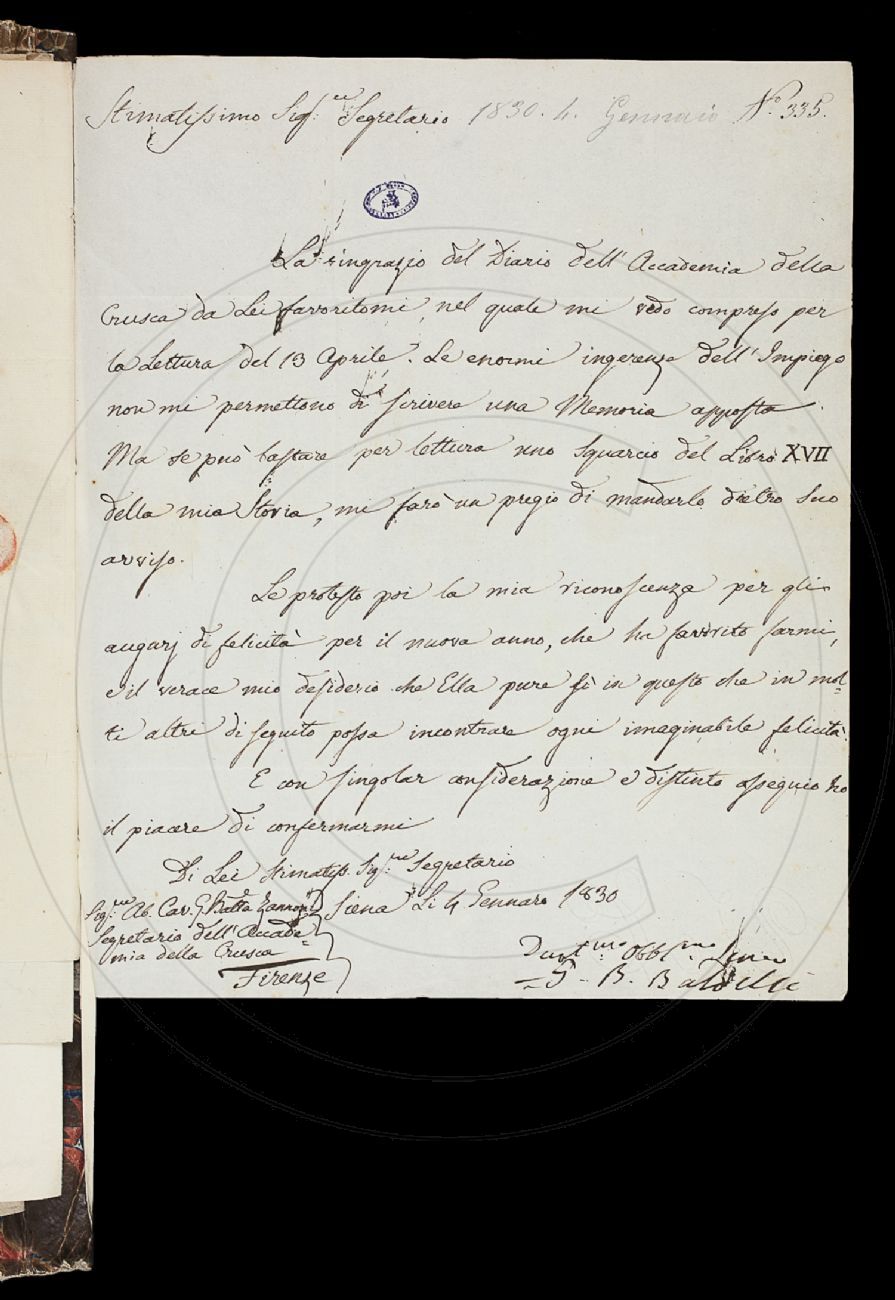 Stimatissimo Sig.re Segretario 1830. 4. Gennaio N.º 335.
La ringrazio del Diario dell'Accademia della
Crusca da Lei favoritomi, nel quale mi vedo compreso per
la Lettura del 13 Aprile. Le enormi ingerenze dell'Impiego
non mi permettono di scrivere una Memoria apposta.
Ma se può bastare per lettura uno squarcio del Libro XVII
della mia Storia, mi farò un pregio di mandarlo dietro suo
avviso.
Le protesto poi la mia riconoscenza per gli
augurj di felicità per il nuova anno, che ha favorito farmi,
e il verace mio desiderio che Ella pure sì in questo che in mol=
ti altri di seguito possa incontrare ogni imaginabile felicità.
E con singolar considerazione e distinto ossequio ho
il piacere di confermarmi
Di Lei Stimatiss. Sig.re Segretario
Siena Li 4 Gennaro 1830
Sig.re Ab. Cav. G. Batta Zannoni
Segretario dell'Accade=
mia della Crusca
Firenze
Obbl.mo
G. B. Baldelli